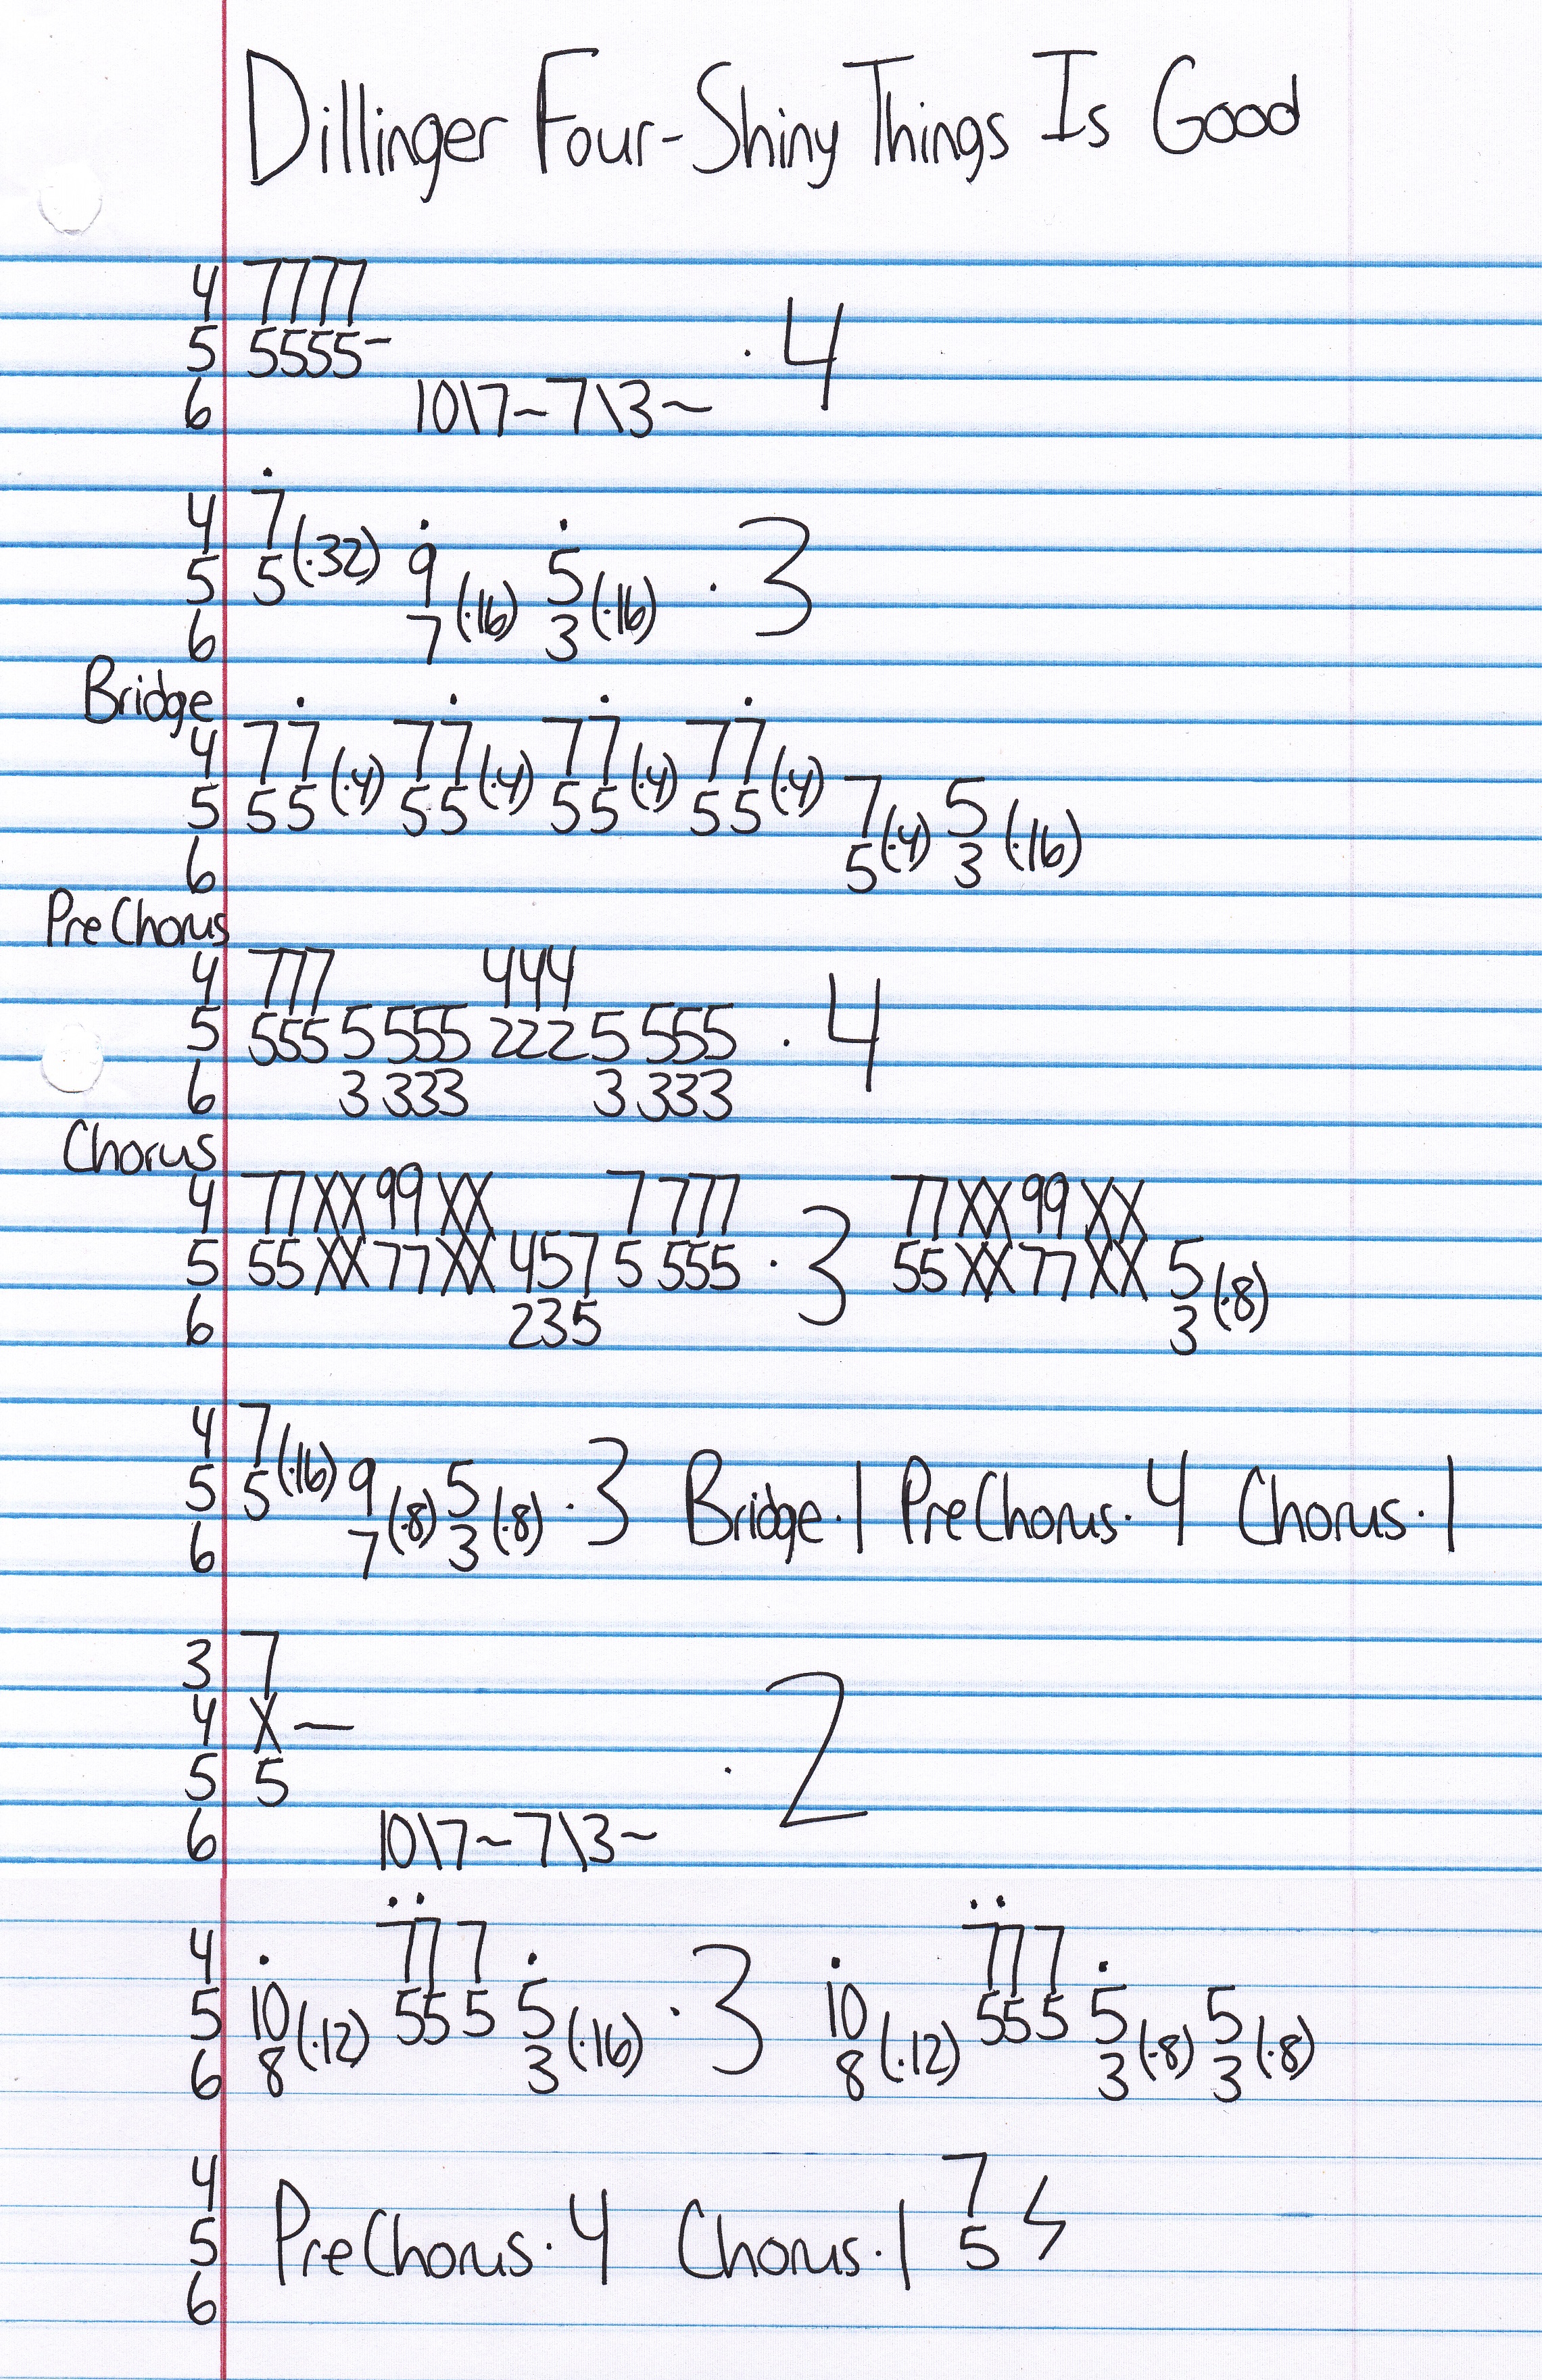 Dillinger Four-Shiny Things Is Good
4 7777
5 5555-
6 10\7~7\3~ ·4
4 7
5 5(·32) 9 5 ·3
6 7(·16) 3(·16)
Bridge
4 77 77 77 77
5 55(·4) 55(·4) 55(·4) 55(·4) 7 5
6 5(·4) 3(·16)
PreChorus
4 777 444
5 555 5 555 222 5 555 ·4
6 3 333 3 333
Chorus
4 77XX99XX 7 777 77XX99XX
5 55XX77XX 457 5 555 ·3 55XX77XX 5
6 235 3(·8)
4 7
5 5(·16) 9 5 ·3 Bridge·1 PreChorus·4 Chorus·1
6 7(·8) 3(·8)
3 7
4 X—
5 5 ·2
6 10\7~7\3~
4 777 777
5 10 555 5 ·3 10 555 5 5
6 8(·12) 3(·16) 8(·12) 3(·8) 3(·8)
4 7
5 PreChorus·4 Chorus·1 5
6